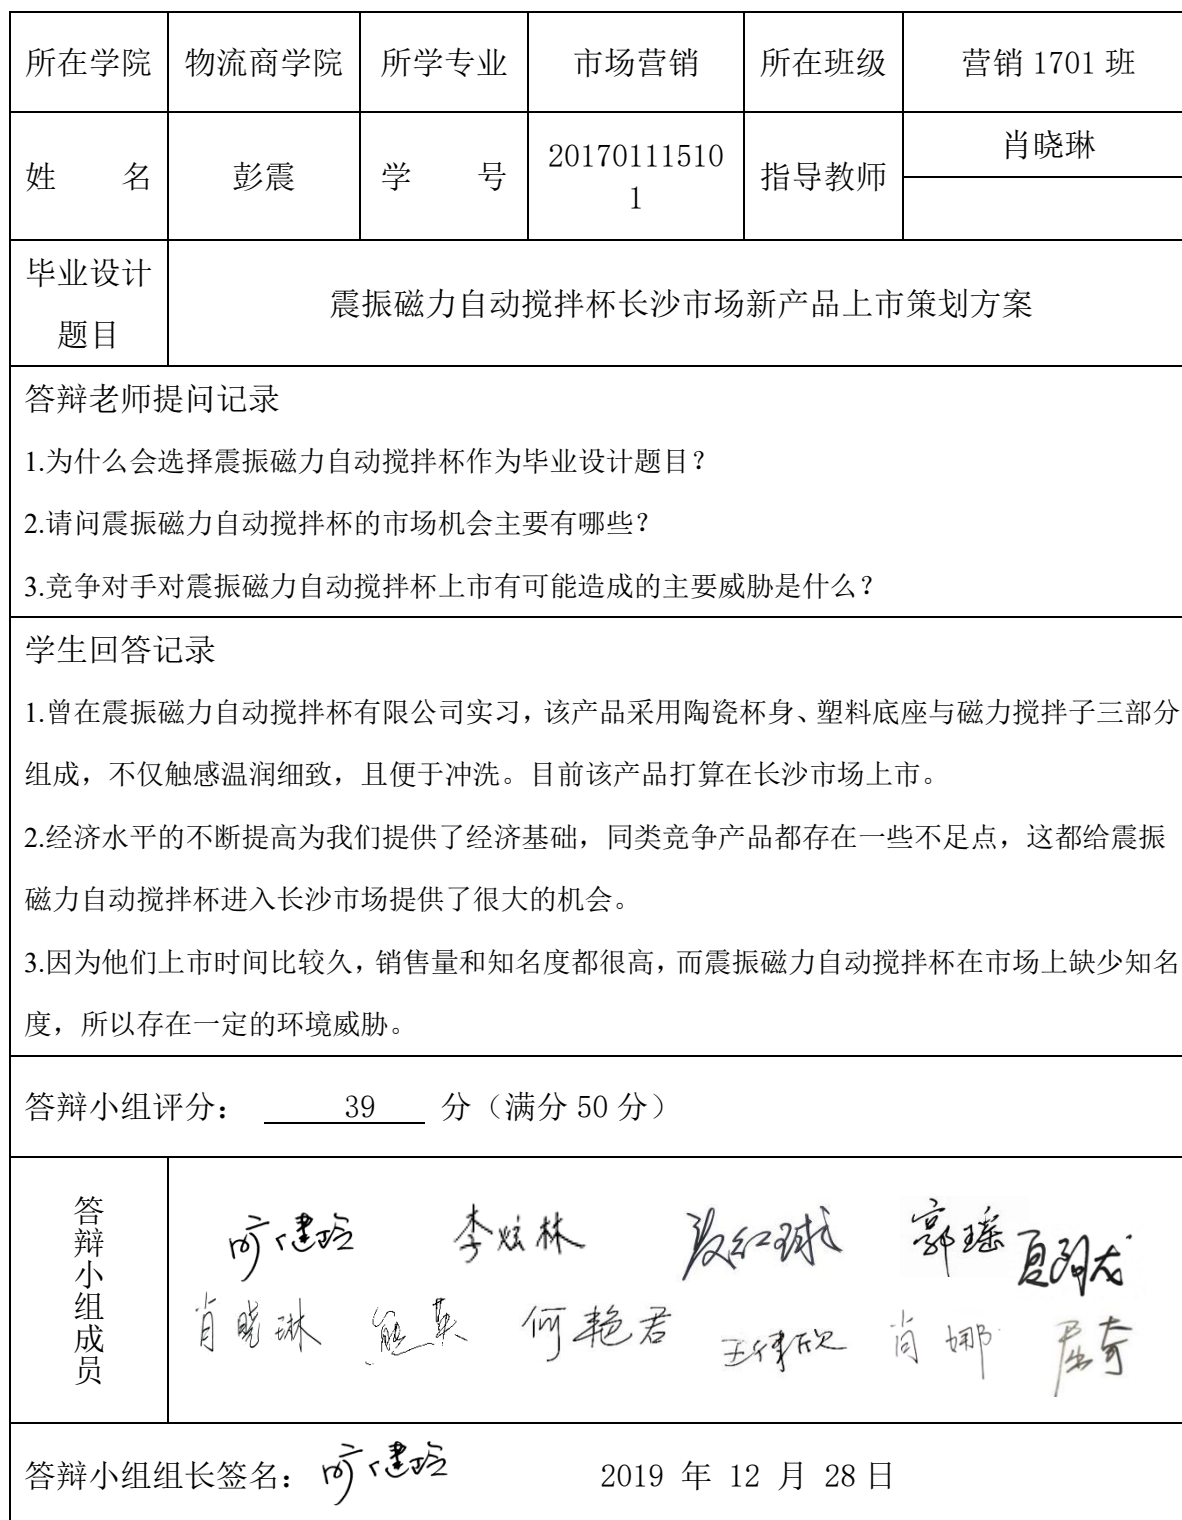 所在学院 物流商学院 所学专业 市场营销 所在班级 营销 1701 班
姓 名 彭震 学 号 20170111510 1 指导教师 肖晓琳
毕业设计
题目
震振磁力自动搅拌杯长沙市场新产品上市策划方案
答辩老师提问记录
1.为什么会选择震振磁力自动搅拌杯作为毕业设计题目？
2.请问震振磁力自动搅拌杯的市场机会主要有哪些？
3.竞争对手对震振磁力自动搅拌杯上市有可能造成的主要威胁是什么？
学生回答记录
1.曾在震振磁力自动搅拌杯有限公司实习，该产品采用陶瓷杯身、塑料底座与磁力搅拌子三部分
组成，不仅触感温润细致，且便于冲洗。目前该产品打算在长沙市场上市。
2.经济水平的不断提高为我们提供了经济基础，同类竞争产品都存在一些不足点，这都给震振
磁力自动搅拌杯进入长沙市场提供了很大的机会。
3.因为他们上市时间比较久，销售量和知名度都很高，而震振磁力自动搅拌杯在市场上缺少知名
度，所以存在一定的环境威胁。
答辩小组评分： 39 分（满分 50 分）
答辩小组成员
邝健玲 李炫林 郭瑶
肖晓琳 熊英 何艳君 肖娜 屈奇
答辩小组组长签名：邝健玲 2019 年 12 月 28 日